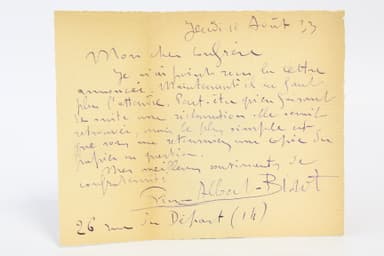 Jeudi 10 Août 33
Mon cher confrère
Je n'ai point reçu la lettre
annoncée. Maintenant il ne faut
plus l'attendre. Peut-être qu'en faisant
de suite une réclamation elle serait
retrouvée, mais le plus simple est
que vous me retourniez une copie du
papier en question.
Mes meilleurs sentiments de
confraternité
Albert-Birot
26 rue du Départ (14)